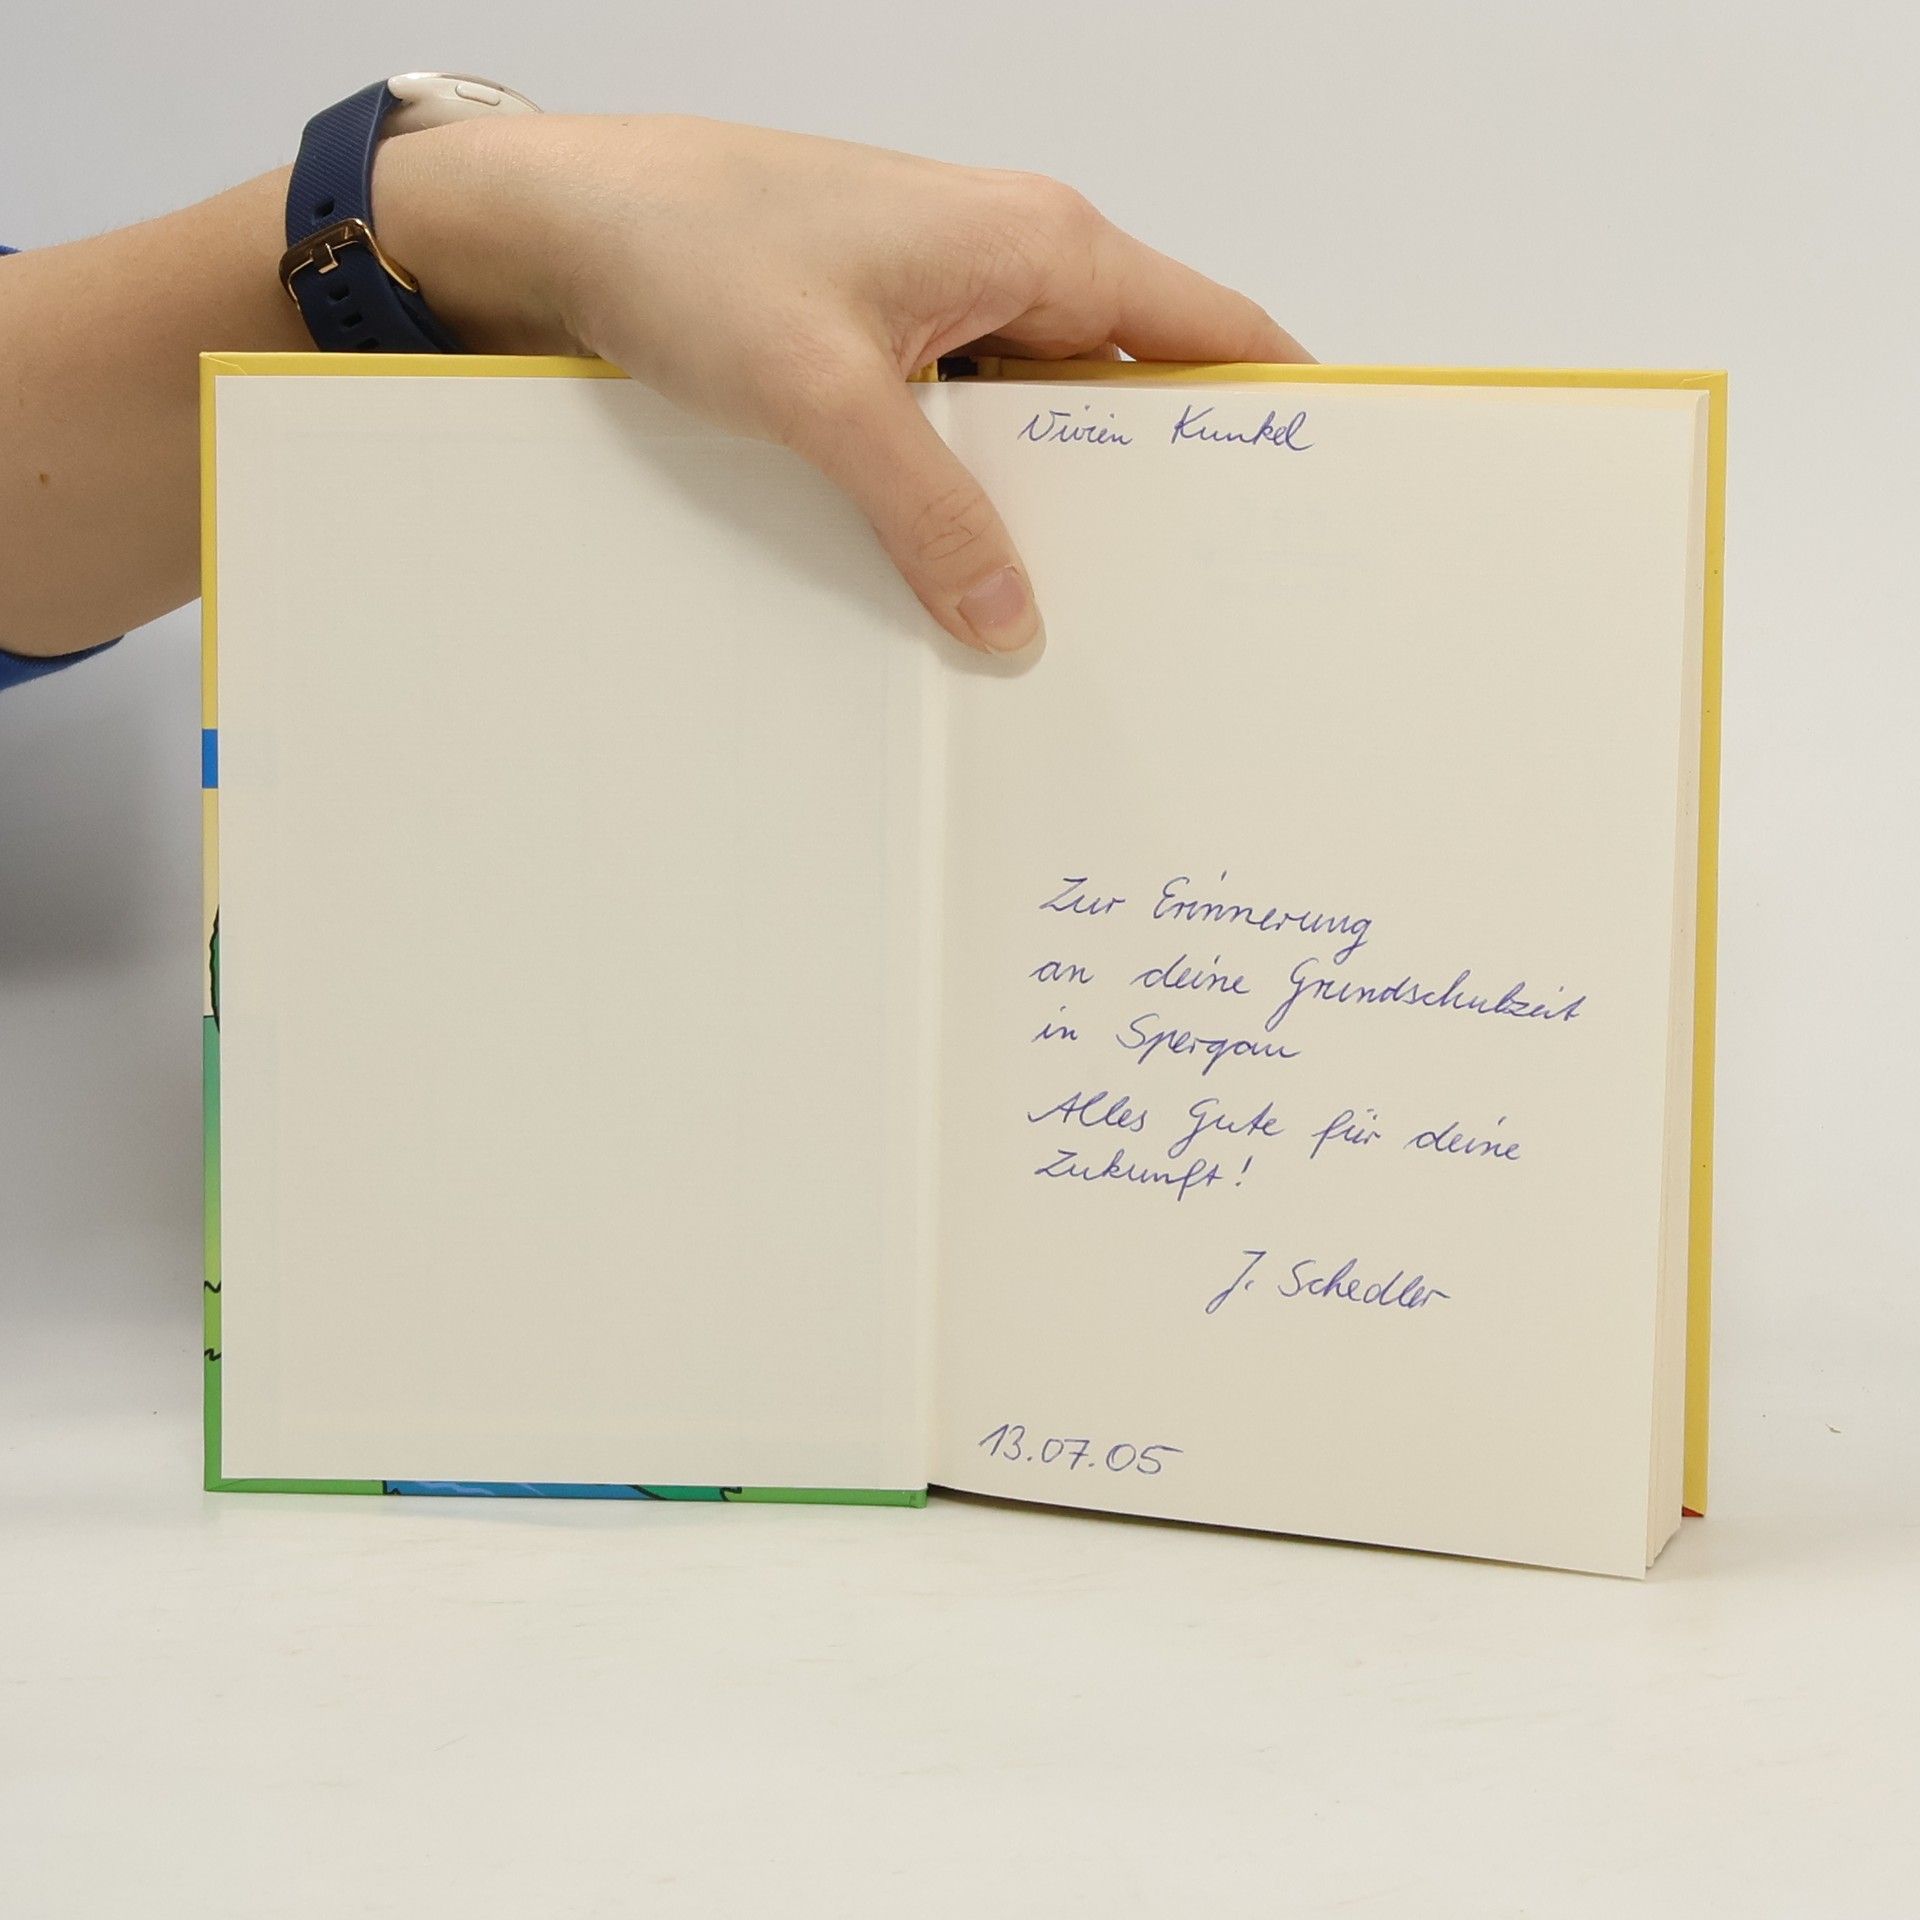 Vivien Kunkel
Zur Erinnerung
an deine Grundschulzeit
in Spergau
Alles Gute für deine
Zukunft!
J. Schedler
13.07.05